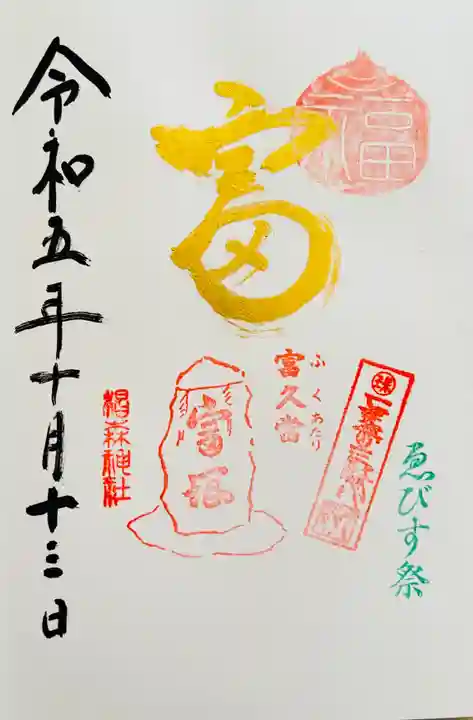 福
富
ふくあたり
富久当
富塚
ゑびす祭
椙森神社
令和五年十月十三日